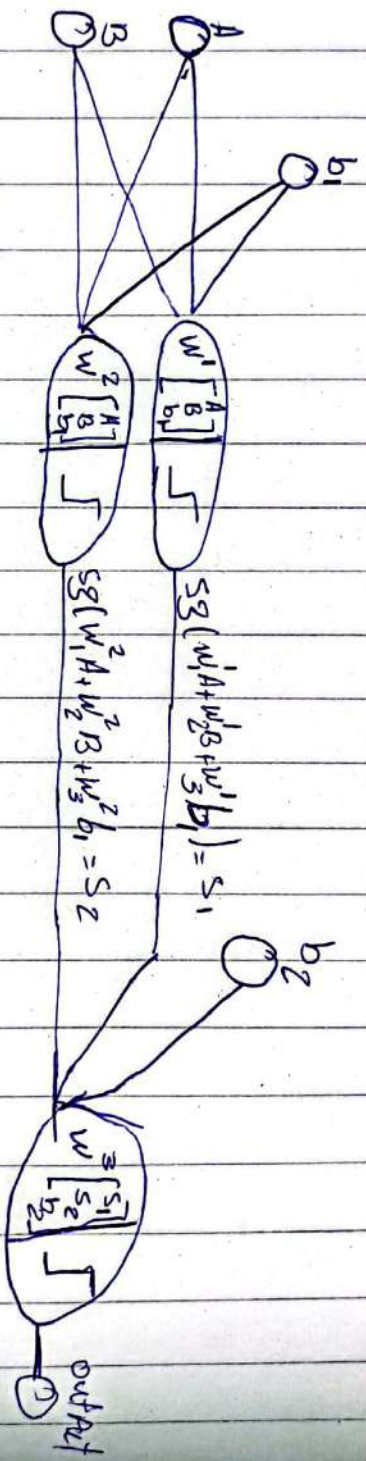 A
B
b₁
W¹ [A B b₁]
W² [A B b₁]
sg(W¹₁A+W¹₂B+W¹₃b₁)=S₁
sg(W²₁A+W²₂B+W²₃b₁=S2
b₂
W³ [S₁ S₂ b₂]
output